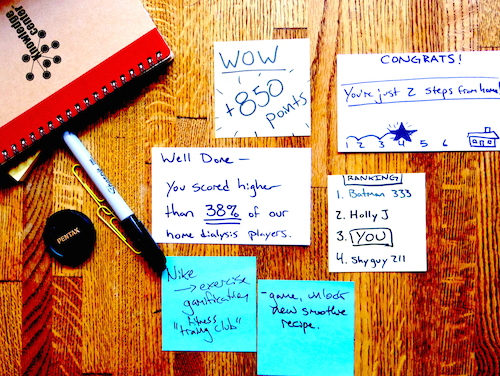 knowledge
center
WOW
+850
points
CONGRATS!
You're just 2 steps from home!
1 2 3 4 5 6
Well Done –
You scored higher
than 38% of our
home dialysis players.
RANKING
1. Batman 333
2. Holly J
3. YOU
4. Shyguy 211
PENTAX
Nike
→ exercise
gamification
fitness
"training club"
- game, unlock
new smoothie
recipe.